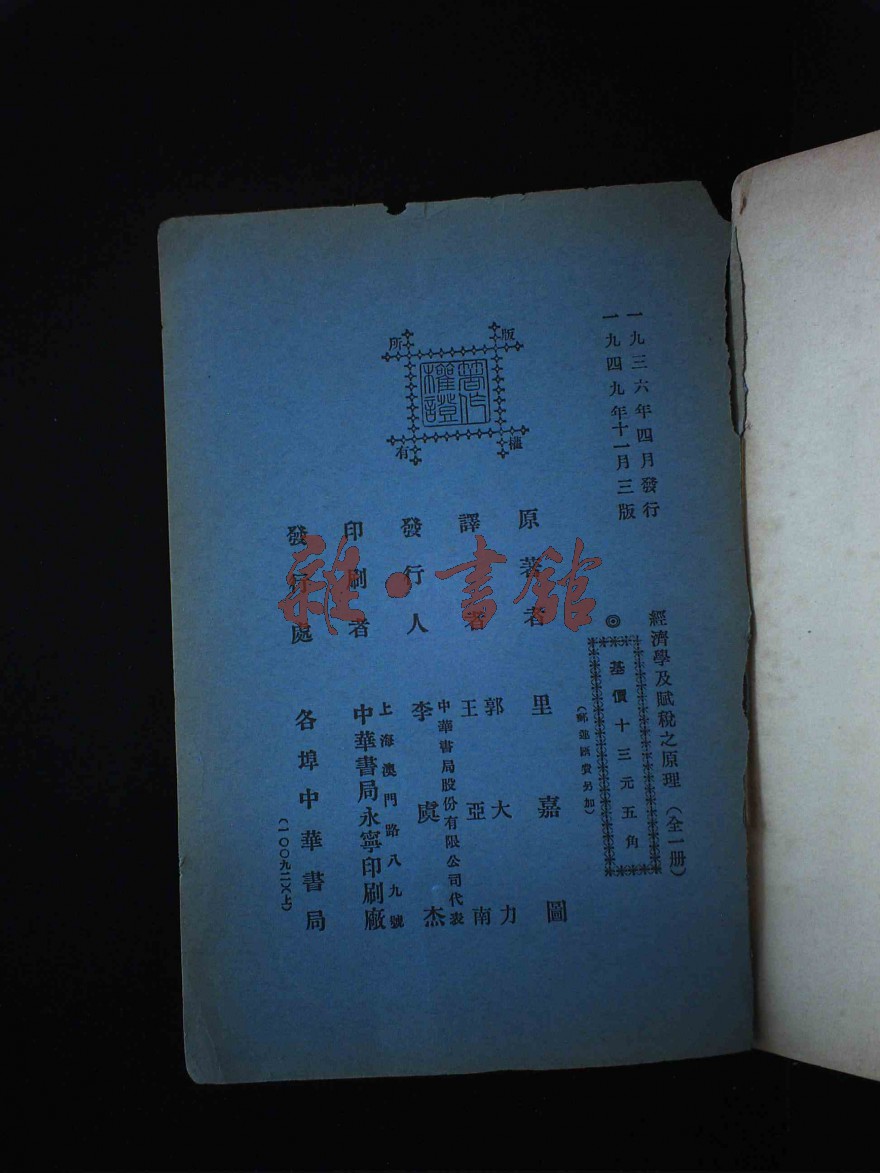 一九三六年四月發行
一九四九年十一月三版
經濟學及賦稅之原理（全一册）
◎基價十三元五角
（郵運匯費另加）
原著者 里嘉圖
譯者 郭大力
王亞南
發行人 李虞杰
中華書局股份有限公司代表
印刷者 中華書局永寧印刷廠
上海澳門路八九號
發行處 各埠中華書局
（一〇〇九二）（上）
版權所有
著作權證
雜·書館